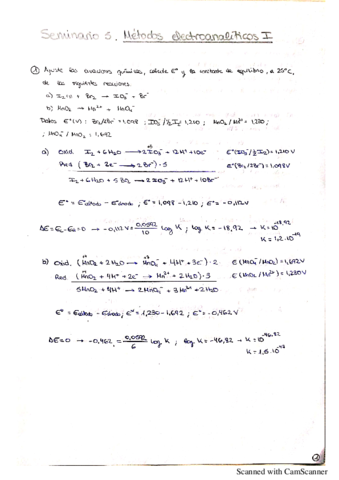 Seminario 5. Métodos electroanalíticos I
① Ajuste las ecuaciones químicas, calcule E° y la constante de equilibrio, a 25°C,
de las siguientes reacciones
a) I₂(s) + Br₂ → IO₃⁻ + Br⁻
b) MnO₂ → Mn²⁺ + MnO₄⁻
Datos E°(V): Br₂/2Br⁻ = 1,098 ; IO₃⁻/½I₂ = 1,210 ; MnO₂/Mn²⁺ = 1,230 ;
; MnO₄⁻/MnO₂ = 1,692
a) Oxid. I₂ + 6H₂O → 2IO₃⁻ + 12H⁺ + 10e⁻ E°(IO₃⁻/½I₂) = 1,210 V
Red. (Br₂ + 2e⁻ → 2Br⁻) · 5 E°(Br₂/2Br⁻) = 1,098 V
I₂ + 6H₂O + 5Br₂ → 2IO₃⁻ + 12H⁺ + 10Br⁻
E° = E°cátodo − E°ánodo ; E° = 1,098 − 1,210 ; E° = −0,112 V
ΔE = E₁ − E₂ = 0 → −0,112 V = 0,0592/10 log K ; log K = −18,92 → K = 10⁻¹⁸,⁹²
K = 1,2 · 10⁻¹⁹
b) Oxid. (MnO₂ + 2H₂O → MnO₄⁻ + 4H⁺ + 3e⁻) · 2 E(MnO₄⁻/MnO₂) = 1,692 V
Red. (MnO₂ + 4H⁺ + 2e⁻ → Mn²⁺ + 2H₂O) · 3 E(MnO₂/Mn²⁺) = 1,230 V
5MnO₂ + 4H⁺ → 2MnO₄⁻ + 3Mn²⁺ + 2H₂O
E° = E°cátodo − E°ánodo ; E° = 1,230 − 1,692 ; E° = −0,462 V
ΔE = 0 → −0,462 = 0,0592/6 log K ; log K = −46,82 → K = 10⁻⁴⁶,⁸²
K = 1,5 · 10⁻⁴⁷
Scanned with CamScanner